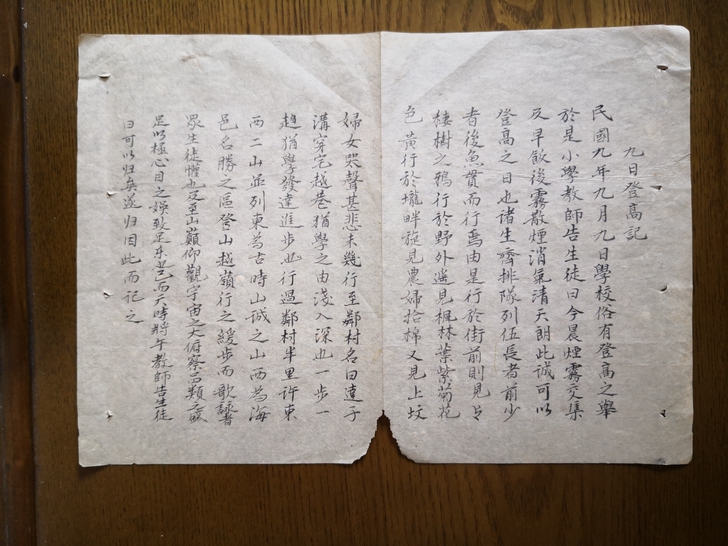 九日登高記
民國九年九月九日學校俗有登高之舉
於是小學教師告生徒曰今晨煙霧交集
及早飲後霧散煙消氣清天朗此誠可以
登高之日也諸生齊排隊列伍長者前少
者後魚貫而行焉由是行於街前則見
棲樹之鴉行於野外遙見楓林葉紫菊花
色黃行於壠畔旋見農婦拾棉又見上坟
婦女哭聲甚悲未幾行至鄰村名曰達子
溝穿宅越巷猶學之由淺入深也一步一
趨猶學發達進步也行過鄰村半里許東
西二山並列東為古時山誠之山西為海
邑名勝之區登山越嶺行之緩步而歌詠者
眾生徒惟也及至山巔仰觀宇宙之大俯察品類之盛
足以極心目之娛致足樂也已而天時將午教師告生徒
曰可以归矣遂归因此而記之